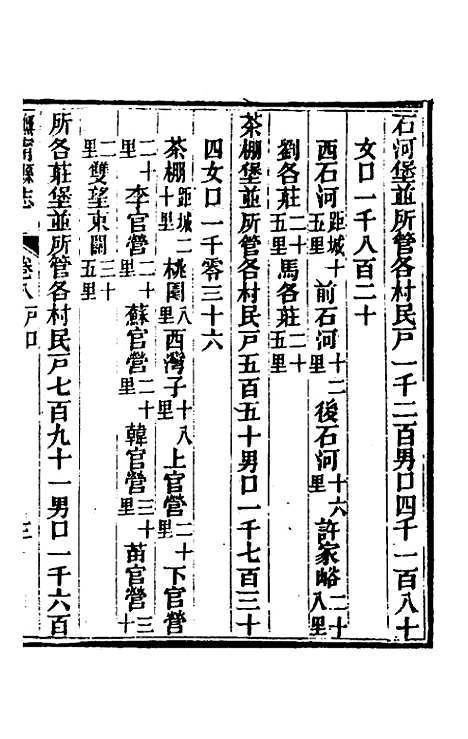 石河堡並所管各村民戸一千二百男口四千一百八十
女口一千八百二十
西石河距城十五里前石河十二里後石河十六里許家峪二十八里
劉各莊二十五里馬各莊二十五里
茶棚堡並所管各村民戸五百五十男口一千七百三十
四女口一千零三十六
茶棚距城二十里桃園八里西灣子十八里上官營二十里下官營
二十里李官營二十里蘇官營二十里韓官營三十里苗官營三十
里雙望東關二十五里
所各莊堡並所管各村民戸七百九十一男口一千六百
撫甯縣志
卷八戸口